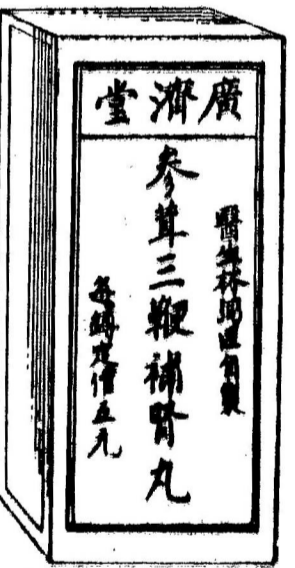 廣濟堂
醫生林㴻自製
參茸三鞭補腎丸
每罇定價五元